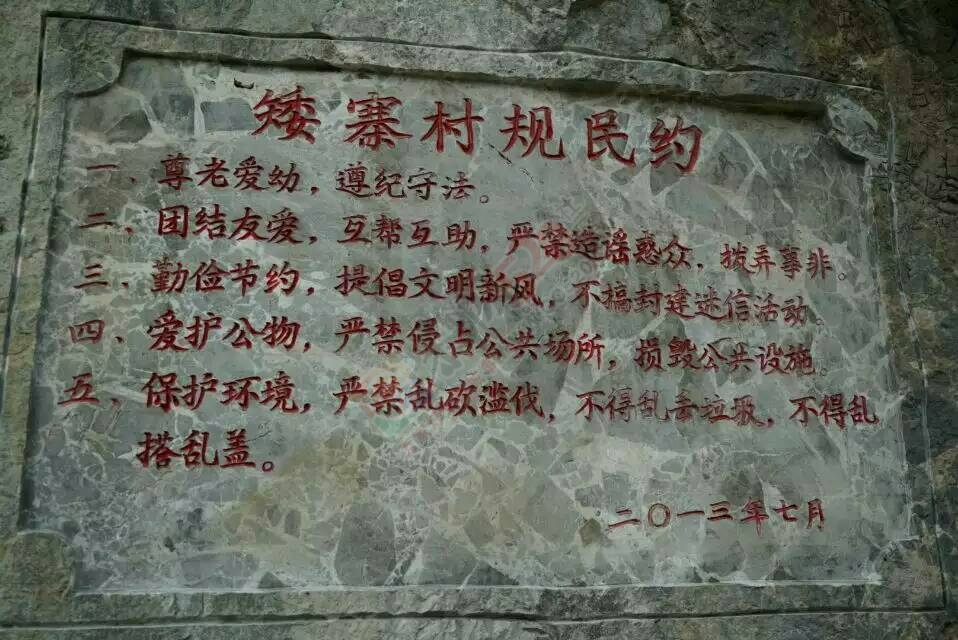 矮寨村规民约
一、尊老爱幼，遵纪守法。
二、团结友爱，互帮互助，严禁造谣惑众，拨弄事非。
三、勤俭节约，提倡文明新风，不搞封建迷信活动。
四、爱护公物，严禁侵占公共场所，损毁公共设施。
五、保护环境，严禁乱砍滥伐，不得乱丢垃圾，不得乱
搭乱盖。
二〇一三年七月